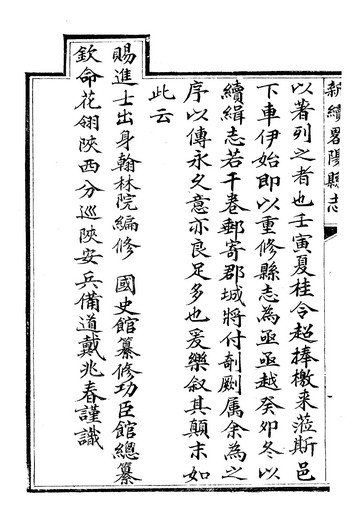 新續畧陽縣志
以著列之者也壬寅夏桂令超捧檄来蒞斯邑
下車伊始即以重修縣志為亟亟越癸夘冬以
續緝志若干卷郵寄郡城將付剞劂属余為之
序以傳永久意亦良足多也爰樂叙其顛末如
此云
賜進士出身翰林院編修 國史館纂修功臣館總纂
欽命花翎陝西分巡陝安兵備道戴兆春謹識